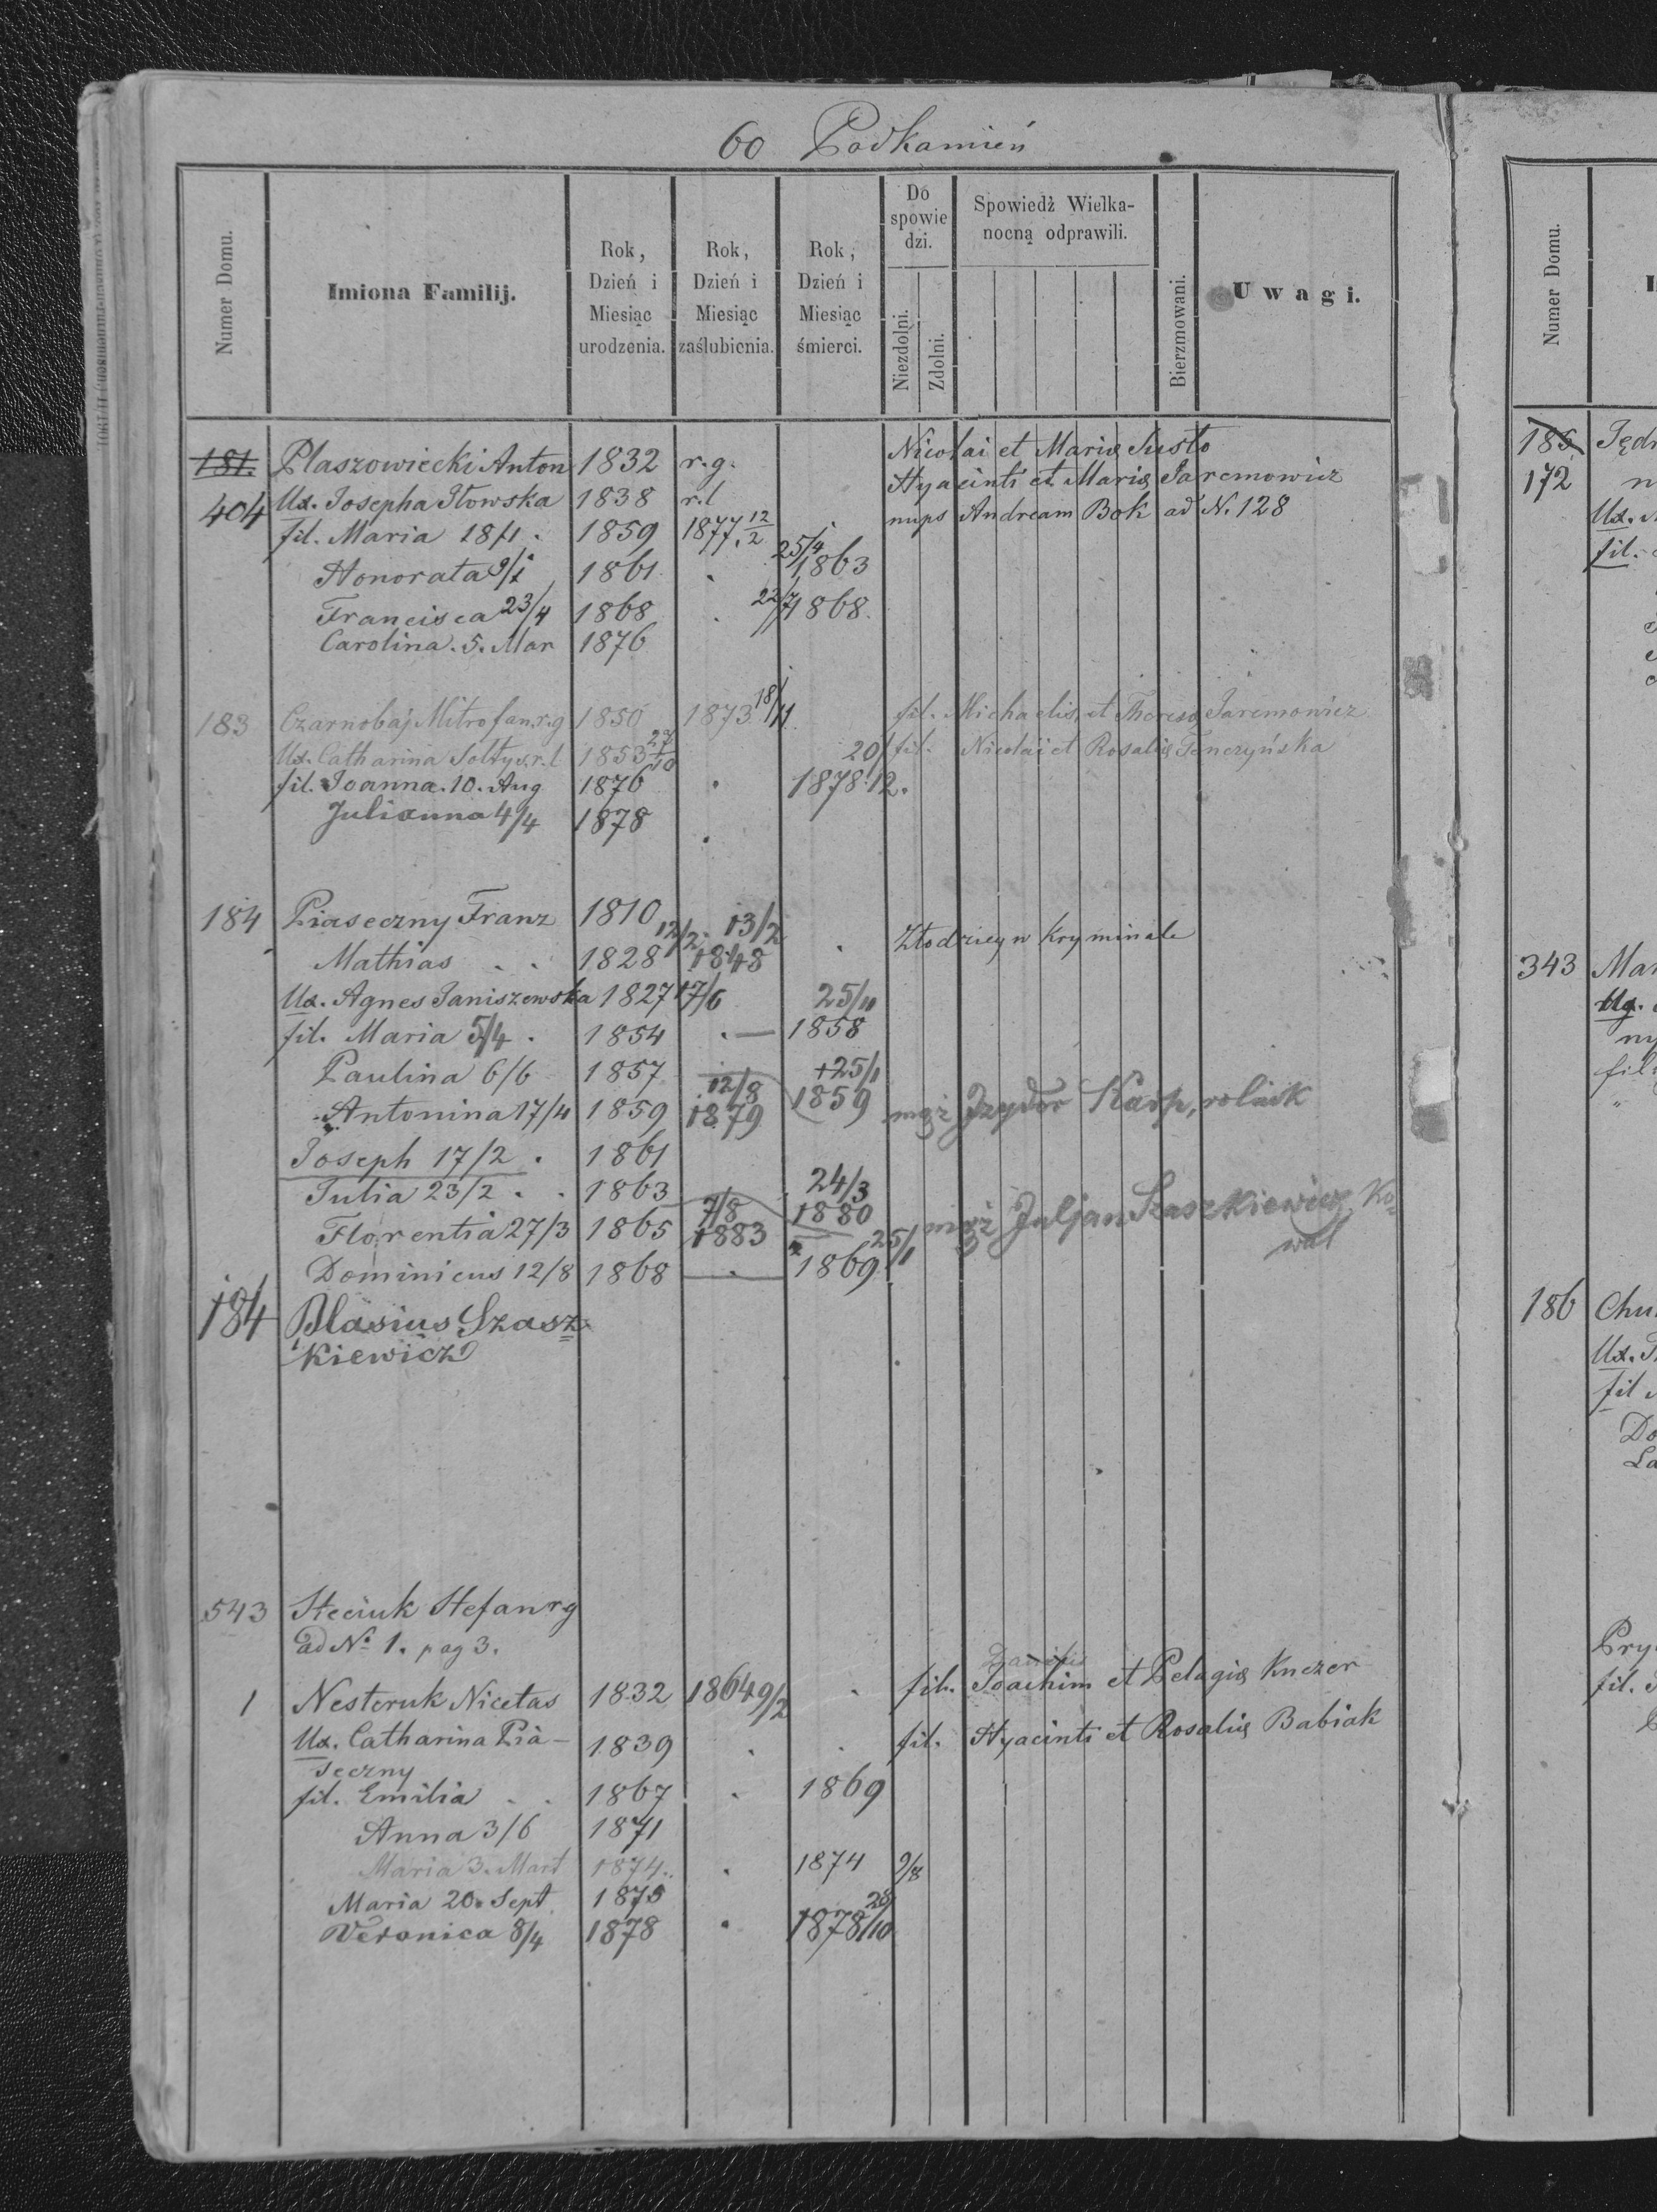 60 Podkamień
Numer Domu.
Imiona Familij.
Rok, Dzień i Miesiąc urodzenia.
Rok, Dzień i Miesiąc zaślubienia.
Rok, Dzień i Miesiąc śmierci.
Do spowie dzi.
Niezdolni.
Zdolni.
Spowiedź Wielka-
nocną odprawili.
Bierzmowani.
Uwagi.
181. Plaszowiecki Anton 1832 r.g. Nicolai et Mariæ Susło
404 Ux. Josepha Iłowska 1838 r.l Hyacinti et Mariæ Jaremowicz
fil. Maria 18/1. 1859 1877. 12/2 nups Andream Bok ad N. 128
Honorata 9/1 1861 25/4 1863
Francisca 23/4 1868 22/7 1868.
Carolina. 5. Mar 1876
183 Czarnobaj Mitrofan. r.g 1850 1873 18/11 fil. Michaelis et Theresæ Jaremowicz
Ux. Catharina Sołtys r.l 1853 27/10 fil. Nicolai et Rosaliæ Tenczyńska
fil. Joanna. 10. Aug 1876 20/ 1878 12.
Julianna 4/4 1878
184 Piaseczny Franz 1810
Mathias 1828 12/2. 13/2 1848 Złodziey w Kryminale
Ux. Agnes Janiszewska 1827 17/6 25/11
fil. Maria 5/4. 1854 1858
Paulina 6/6 1857 +25/1 1859
Antonina 17/4 1859 12/8 1879 mąż Izydor Karp, rolnik
Joseph 17/2. 1861
Julia 23/2 1863 24/3 1880
Florentia 27/3 1865 7/8 1883 mąż Juljan Szaszkiewicz, Ko-
wal
Dominicus 12/8 1868 25/1 1869
184 Blasius Szasz=
kiewicz
543 Steciuk Stefan r g
ad No 1. pag 3.
1 Nesteruk Nicetas 1832 1864 9/2 fil. Joachim et Pelagiæ Knezer
Ux. Catharina Pia- 1839 fil. Hyacinti et Rosaliæ Babiak
seczny
fil. Emilia 1867 1869
Anna 3/6 1871
Maria 3. Mart 1874. 1874 9/8
Maria 20. Sept. 1875
Veronica 8/4 1878 1878 28/10
Numer Domu.
185
172
Ux.
fil.
343
Ux.
186
Ux.
fil
fil.